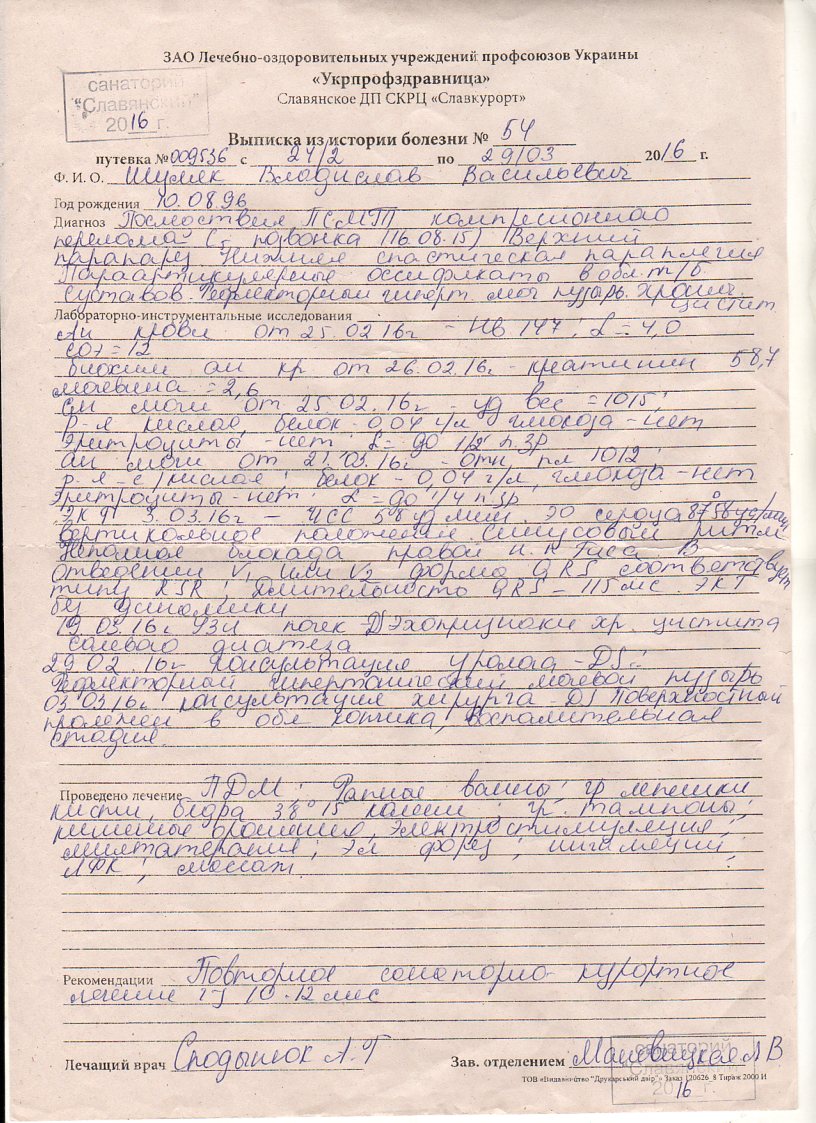 ЗАО Лечебно-оздоровительных учреждений профсоюзов Украины
«Укрпрофздравница»
Славянское ДП СКРЦ «Славкурорт»
санаторий
"Славянский"
2016 г.
Выписка из истории болезни № 54
путевка №009536 с 24/2 по 29/03 2016 г.
Ф. И. О. Шумек Владислав Васильевич
Год рождения 10.08.96
Диагноз Последствия ПСМТ компресионного
перелома С5 позвонка (16.08.15) Верхний
парапарез Нижняя спастическая параплегия
Параартикулярные оссификаты в обл. т/б
суставов. Рефлекторный гиперт. моч пузырь. Хронич.
цистит
Лабораторно-инструментальные исследования
Ан крови от 25.02.16г - Нв 147; L = 4,0
СОЭ = 12
биохим ан кр от 26.02.16г - креатинин 58,7
мочевина = 2,6
Ан мочи от 25.02.16г - уд вес = 1015;
р-я кислая, белок - 0,04 г/л глюкоза - нет
Эритроциты - нет L = до 1/2 п.зр
ан мочи от 21.03.16г - отн пл 1012;
р-я - с/кислая; белок - 0,04 г/л, глюкоза - нет
Эритроциты - нет; L = до 1/4 п.зр
ЭКГ 3.03.16г - ЧСС 58 уд мин. ЭО сердца 87°
вертикальное положение Синусовый ритм
Неполная блокада правой н. п. Гиса. В
отведении V1 или V2 форма QRS соответствует
типу RSR, длительность QRS - 115 мс. ЭКГ
без динамики
19.03.16г УЗИ почек - Эхопризнаки хр. цистита
солевого диатеза
29.02.16г Консультация уролога - DS:
Рефлекторный гипертонический мочевой пузырь
03.03.16г консультация хирурга - DS Поверхностный
пролежен в обл копчика, воспалительная
стадия.
Проведено лечение ПДМ; Рапные ванны; гр лепешки
кисти, бедра 38° 15 ; гр. тампоны;
кишечные орошения, электростимуляция;
милтатерапия; эл форез; ингаляции;
ЛФК; массаж.
Рекомендации Повторное санаторно-курортное
лечение 10-12 мес
Лечащий врач А. Г
Зав. отделением Л В
санаторий
"Славянский"
2016 г.
ТОВ «Видавництво "Друкарський двір"» Заказ 120626_8 Тираж 2000 И